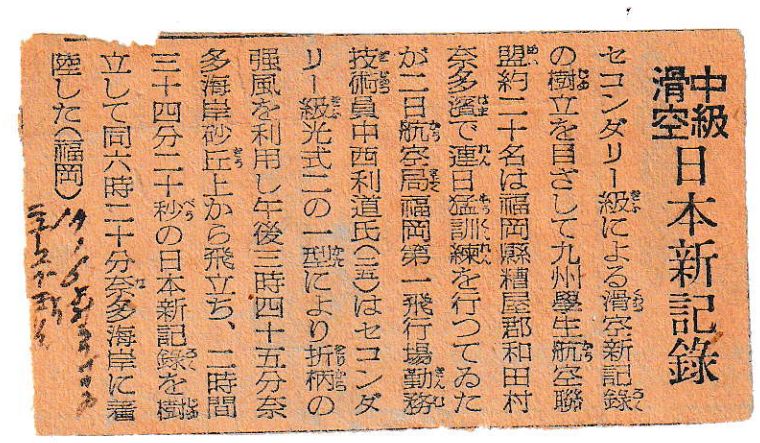 中級
滑空
日本新記錄
セコンダリー級による滑空新記錄
の樹立を目ざして九州學生航空聯
盟約二十名は福岡縣糟屋郡和田村
奈多濱で連日猛訓練を行つてゐた
が二日航空局福岡第一飛行場勤務
技術員中西利道氏(二五)はセコンダ
リー級光式二の一型により折柄の
强風を利用し午後三時四十五分奈
多海岸砂丘上から飛立ち、二時間
三十四分二十秒の日本新記錄を樹
立して同六時二十分奈多海岸に著
陸した(福岡)